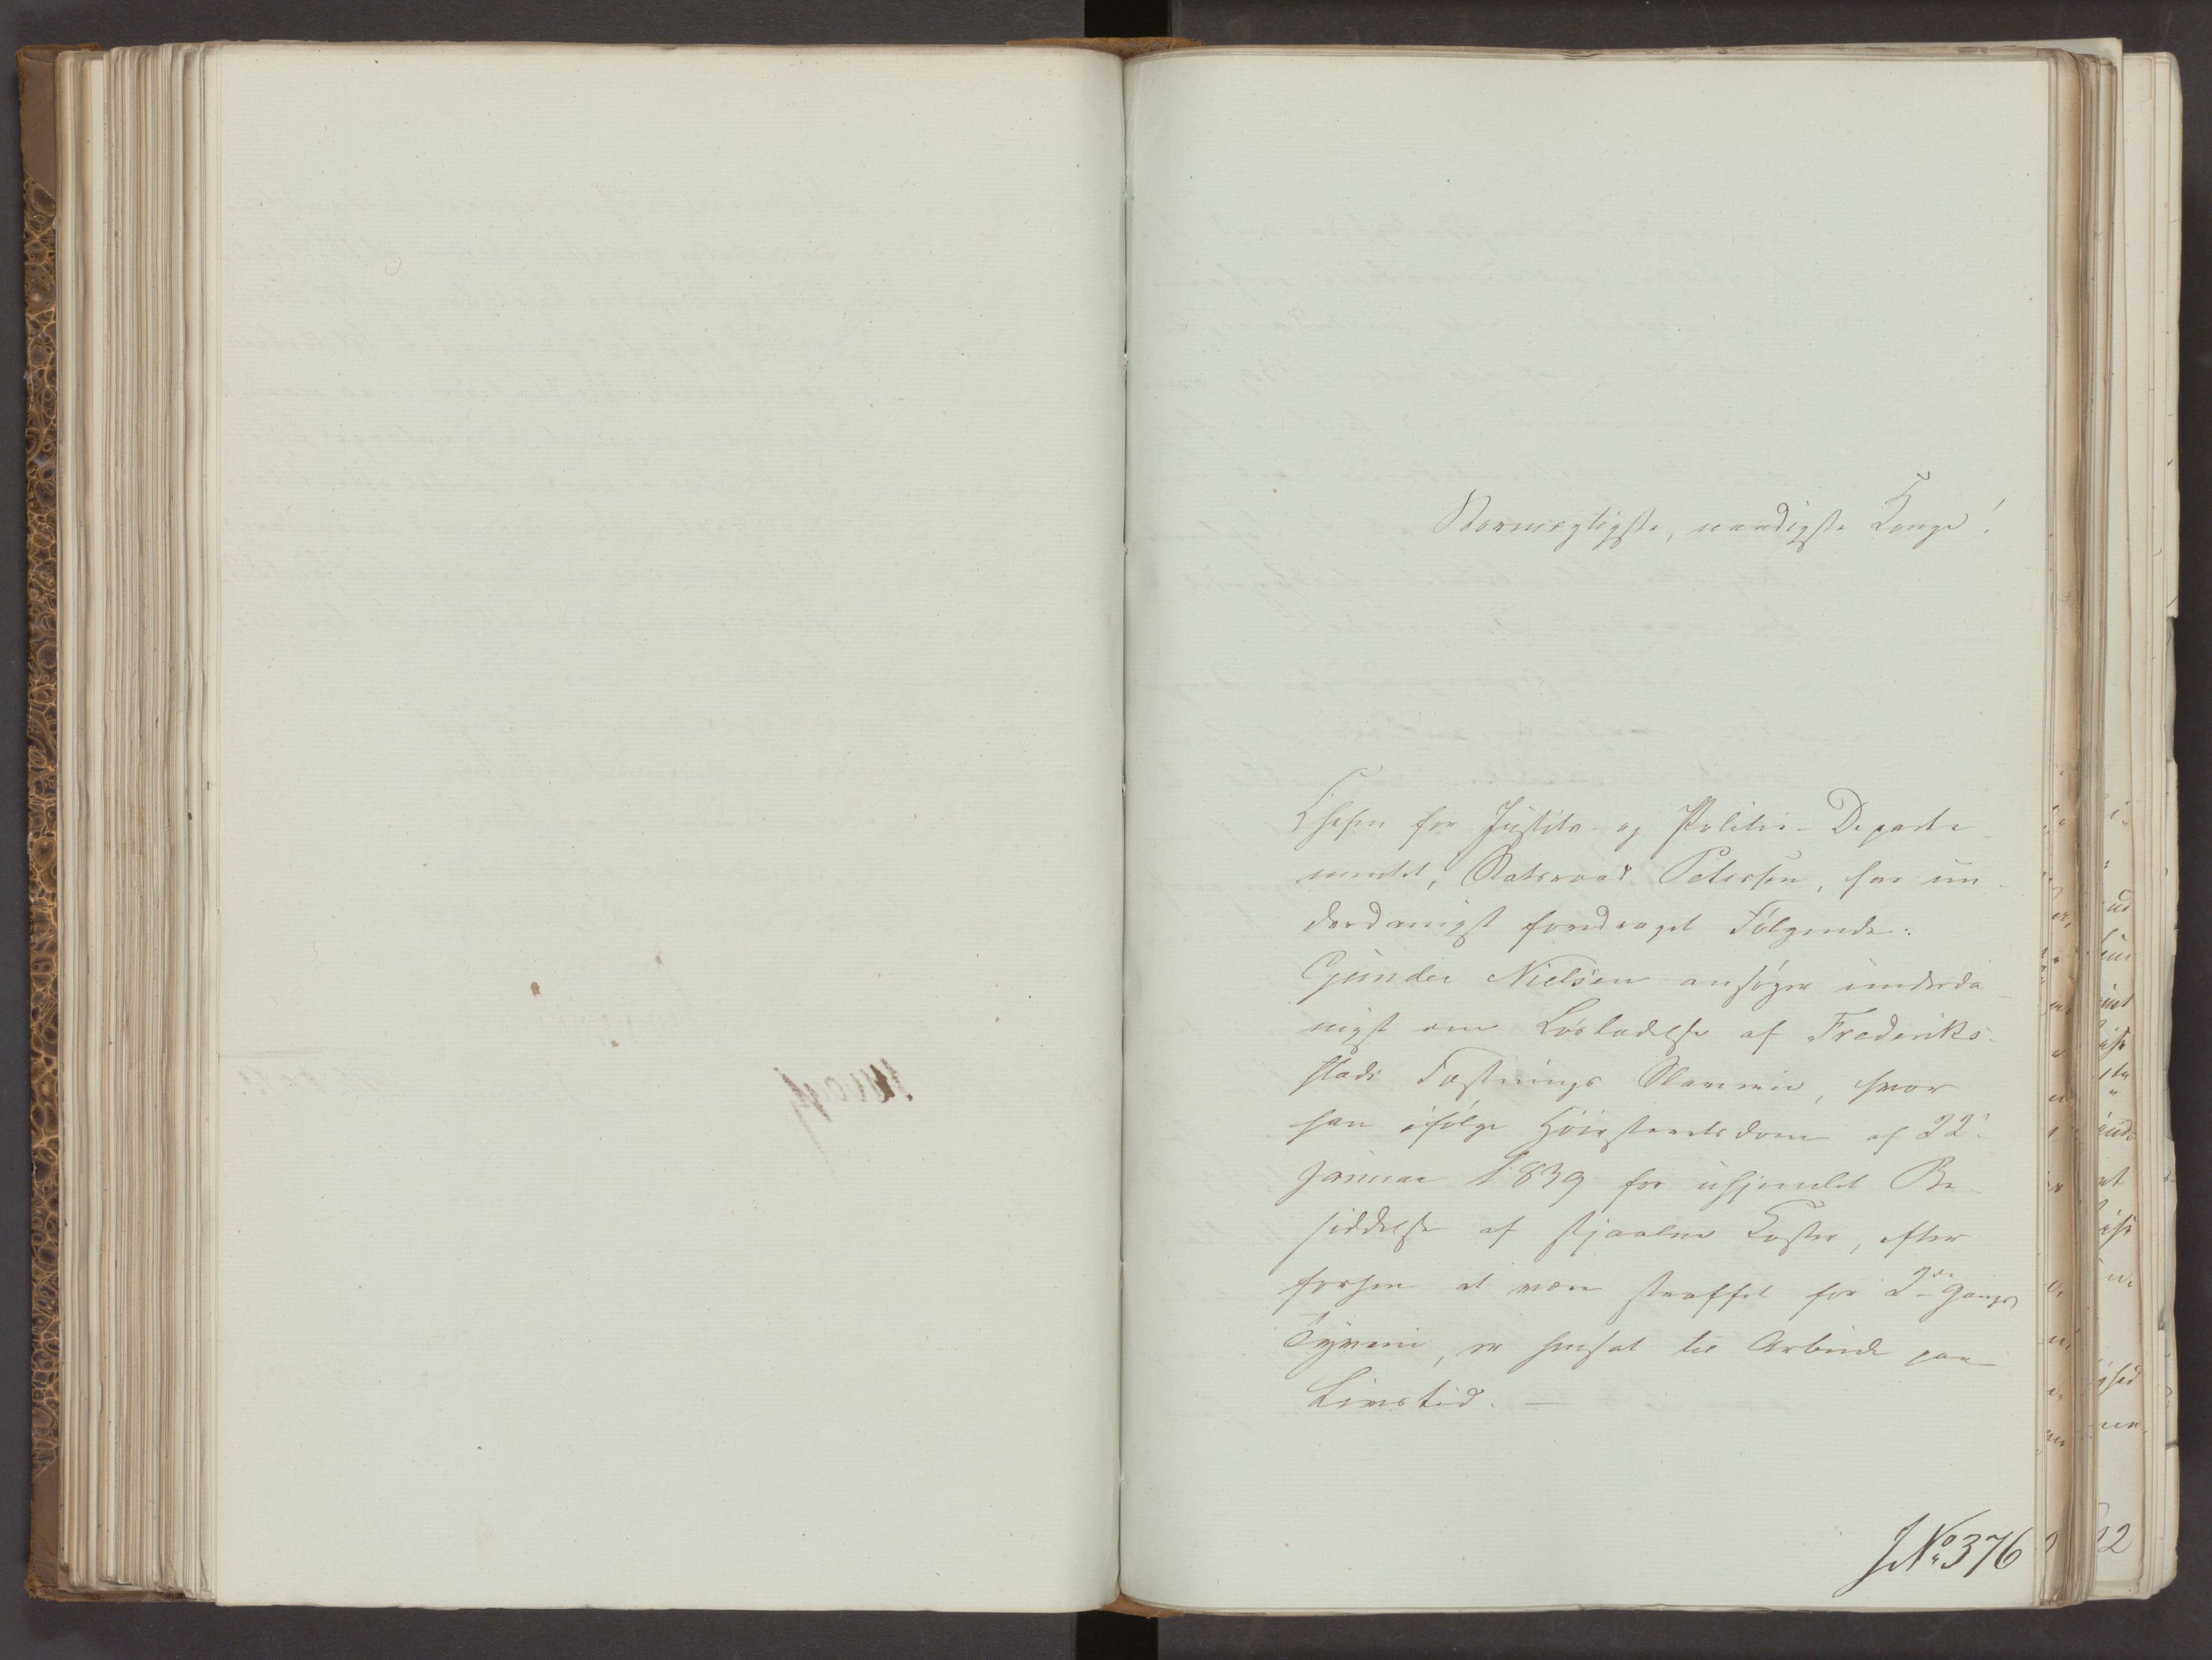 Stormægtigste, naadigste Konge!
Chefen for Justits- og Politie-Departe
mentet, Statsraad Petersen, har un-
derdanigst foredraget Følgende:
Gunder Nielsen ansøger underda-
nigst om Løsladelse af Frederiks-
stads Fæstnings Slaverie, hvor
han ifølge Høiesteretsdom af 22.
Januar 1839 for uhjemlet Be-
siddelse af stjaalne Koster, efter
forhen at være straffet for 2den Gangs
Tyverie, er hensat til Arbeide paa
Livstid. —
J. No. 376